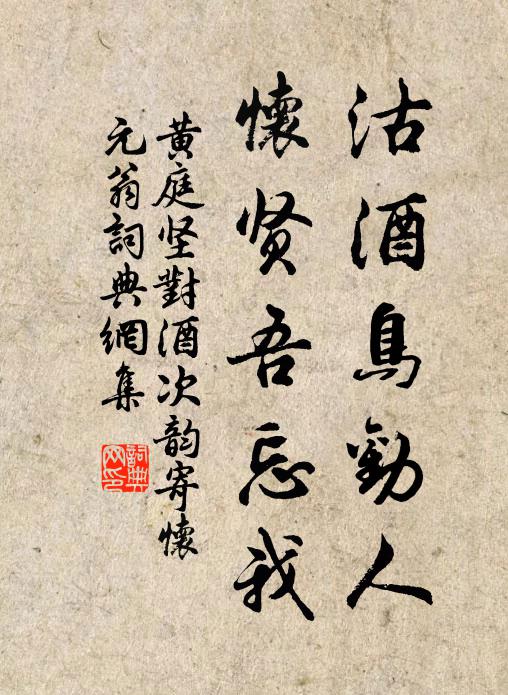 沽酒鳥勸人
懷贤吾忘我
黄庭坚對酒次韵寄懷
元翁詞典網集
詞典
网印